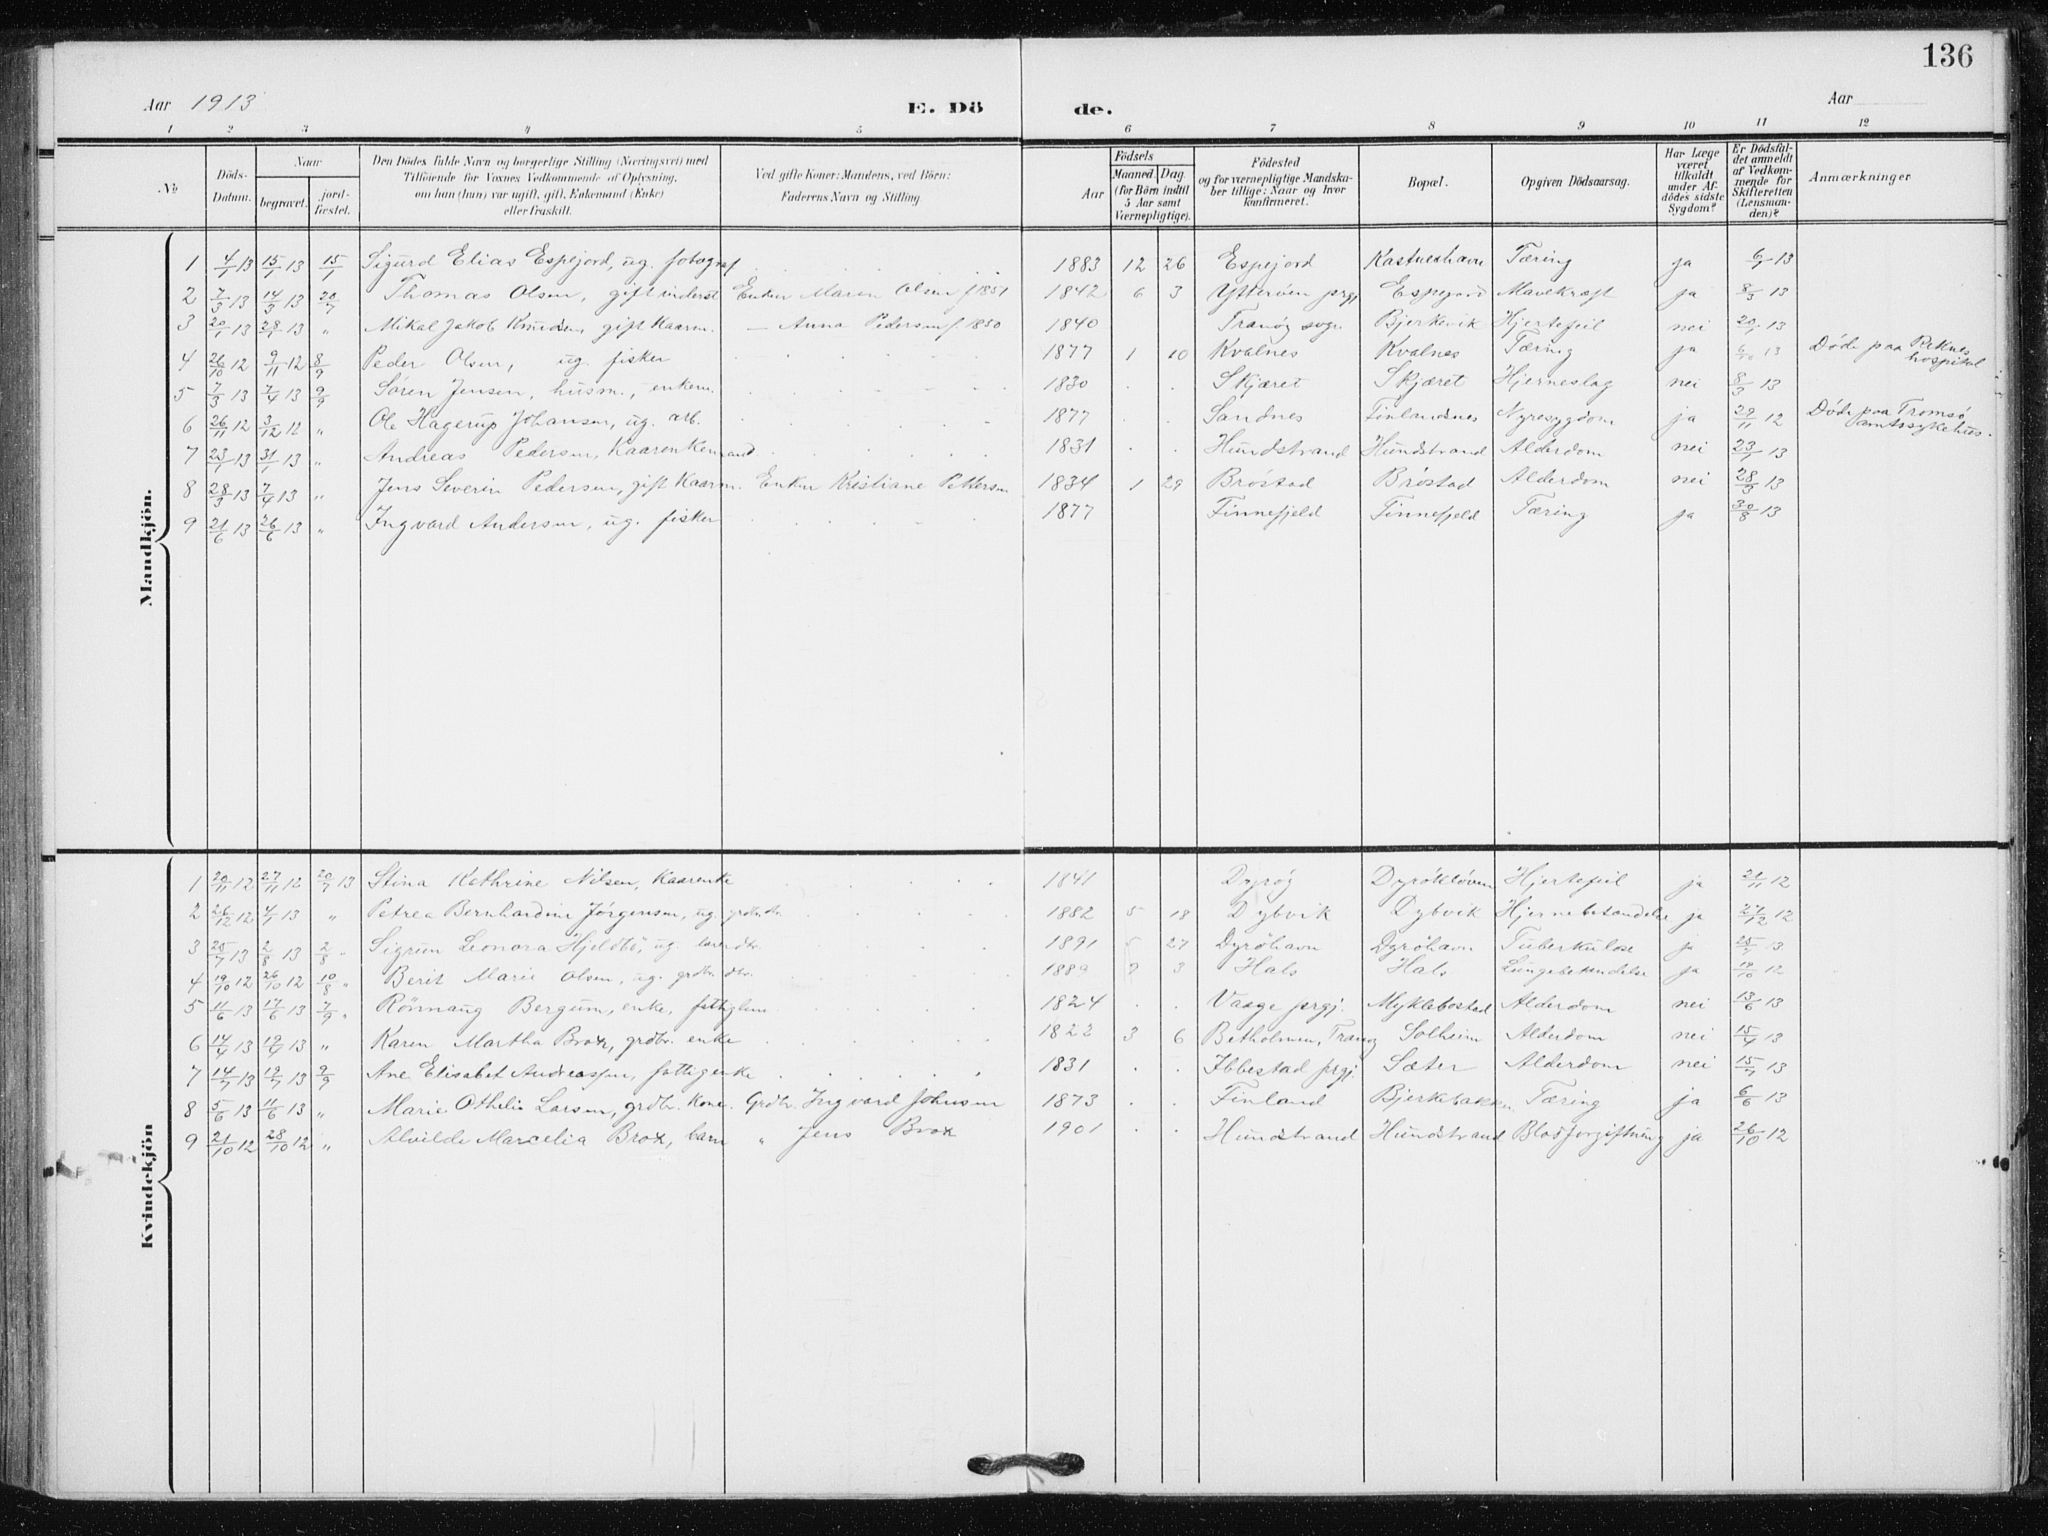 136
Aar 1913 E. Dö de. Aar
1 2 3 4 5 6 7 8 9 10 11 12
№ Döds-Datum. Naar begravet. jord-fæstet. Den Dödes fulde Navn og borgerlige Stilling (Næringsvei) med Tilföiende for Voxnes Vedkommende af Oplysning, om han (hun) var ugift, gift, Enkemand (Enke) eller fraskilt. Ved gifte Koner: Mandens, ved Börn: Faderens Navn og Stilling. Födsels Aar Maaned. Dag. (for Börn indtil 5 Aar samt Værnepligtige). Födested og for værnepligtige Mandskaber tillige: Naar og hvor konfirmeret. Bopæl. Opgiven Dödsaarsag. Har Læge været tilkaldt under Afdödes sidste Sygdom? Er Dödsfaldet anmeldt af Vedkommende for Skifteretten (Lensmanden)? Anmærkninger
Mandkjön.
1 4/1 13 15/1 13 15/1 Sigurd Elias Espejord, ug. fotograf 1883 12 26 Espejord Kastneshavn Tæring ja 6/1 13
2 7/3 13 14/3 13 20/7 Thomas Olsen, gift inderst Enken Maren Olsen f 1851 1842 6 3 Ytterøen prgj Espejord Mavekræft ja 8/3 13
3 20/1 13 28/1 13 " Mikal Jakob Knudsen, gift Kaarm. — Anna Pedersen f. 1850 1840 Tranøy sogn Bjerkevik Hjertefeil nei 20/1 13
4 26/10 12 9/11 12 8/9 Peder Olsen, ug. fisker 1877 1 10 Kvalnes Kvalnes Tæring ja 6/10 13 Død paa Reknes hospital
5 7/3 13 7/4 13 9/9 Søren Jensen, husm., enkem. 1830 Skjæret Skjæret Hjerneslag nei 8/3 13
6 26/11 12 3/12 12 " Ole Hagerup Johansen, ug. arb. 1877 Sandnes Finlandsnes Nyresygdom ja 29/11 12 Død paa Tromsø amtssykehus.
7 23/1 13 31/1 13 " Andreas Pedersen, Kaarenkemand 1831 Hundstrand Hundstrand Alderdom nei 23/1 13
8 28/3 13 7/4 13 " Jens Severin Pedersen, gift Kaarm. Enken Kristiane Pettersen 1834 1 29 Brøstad Brøstad Alderdom nei 28/3 13
9 21/6 13 26/6 13 " Ingvard Andersen, ug. fisker 1877 Finnefjeld Finnefjeld Tæring ja 30/8 13
Kvindekjön
1 20/11 12 27/11 12 20/7 13 Stina Kathrine Nilsen, Kaarenke 1841 Dyrøy Dyrøkløven Hjertefeil ja 21/11 12
2 26/12 12 4/1 13 " Petrea Bernhardine Jørgensen, ug. grdbr.dtr. 1882 5 18 Dybvik Dybvik Hjernebetændelse ja 27/12 12
3 25/7 13 2/8 13 2/8 " Sigrun Leonora Hjeldbø, ug. 1891 5 27 Dyrøhavn Dyrøhavn Tuberkulose ja 28/7 13
4 19/10 12 26/10 12 10/8 " Berit Marie Olsen, ug. grdbr. dtr. 1889 9 3 Hals Hals Lungebetændelse ja 19/10 12
5 11/6 13 17/6 13 7/9 " Rønnaug Bergum, enke, fattiglem 1824 Vaage prgj. Myklebostad Alderdom nei 13/6 13
6 14/4 13 19/4 13 " Karen Martha Brox, grdbr. enke 1822 3 6 Betholmen, Tranøy Solheim Alderdom nei 15/4 13
7 14/7 13 19/7 13 9/9 Ane Elisabet Andreassen, fattigenke 1831 Ibbestad prgj. Sæter Alderdom nei 15/7 13
8 5/6 13 11/6 13 " Marie Othelie Larsen, grdbr. Kone. Grdbr. Ingvard Johnsen 1873 Finland Bjerkebakken Tæring ja 6/6 13
9 21/10 12 28/10 12 " Alvilde Marcelia Brox, barn " Jens Brox 1901 Hundstrand Hundstrand Blodforgiftning ja 26/10 12